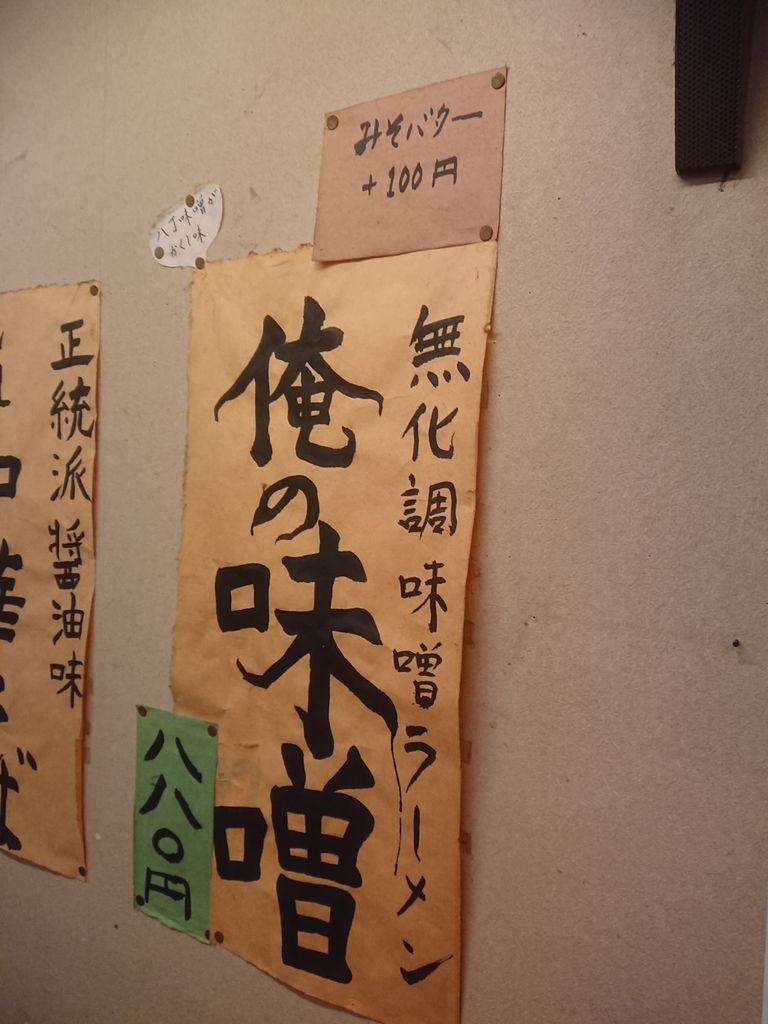 みそバター
+100円
八丁味噌が
かくし味
無化調味噌ラーメン
俺の味噌
八八〇円
正統派醤油味